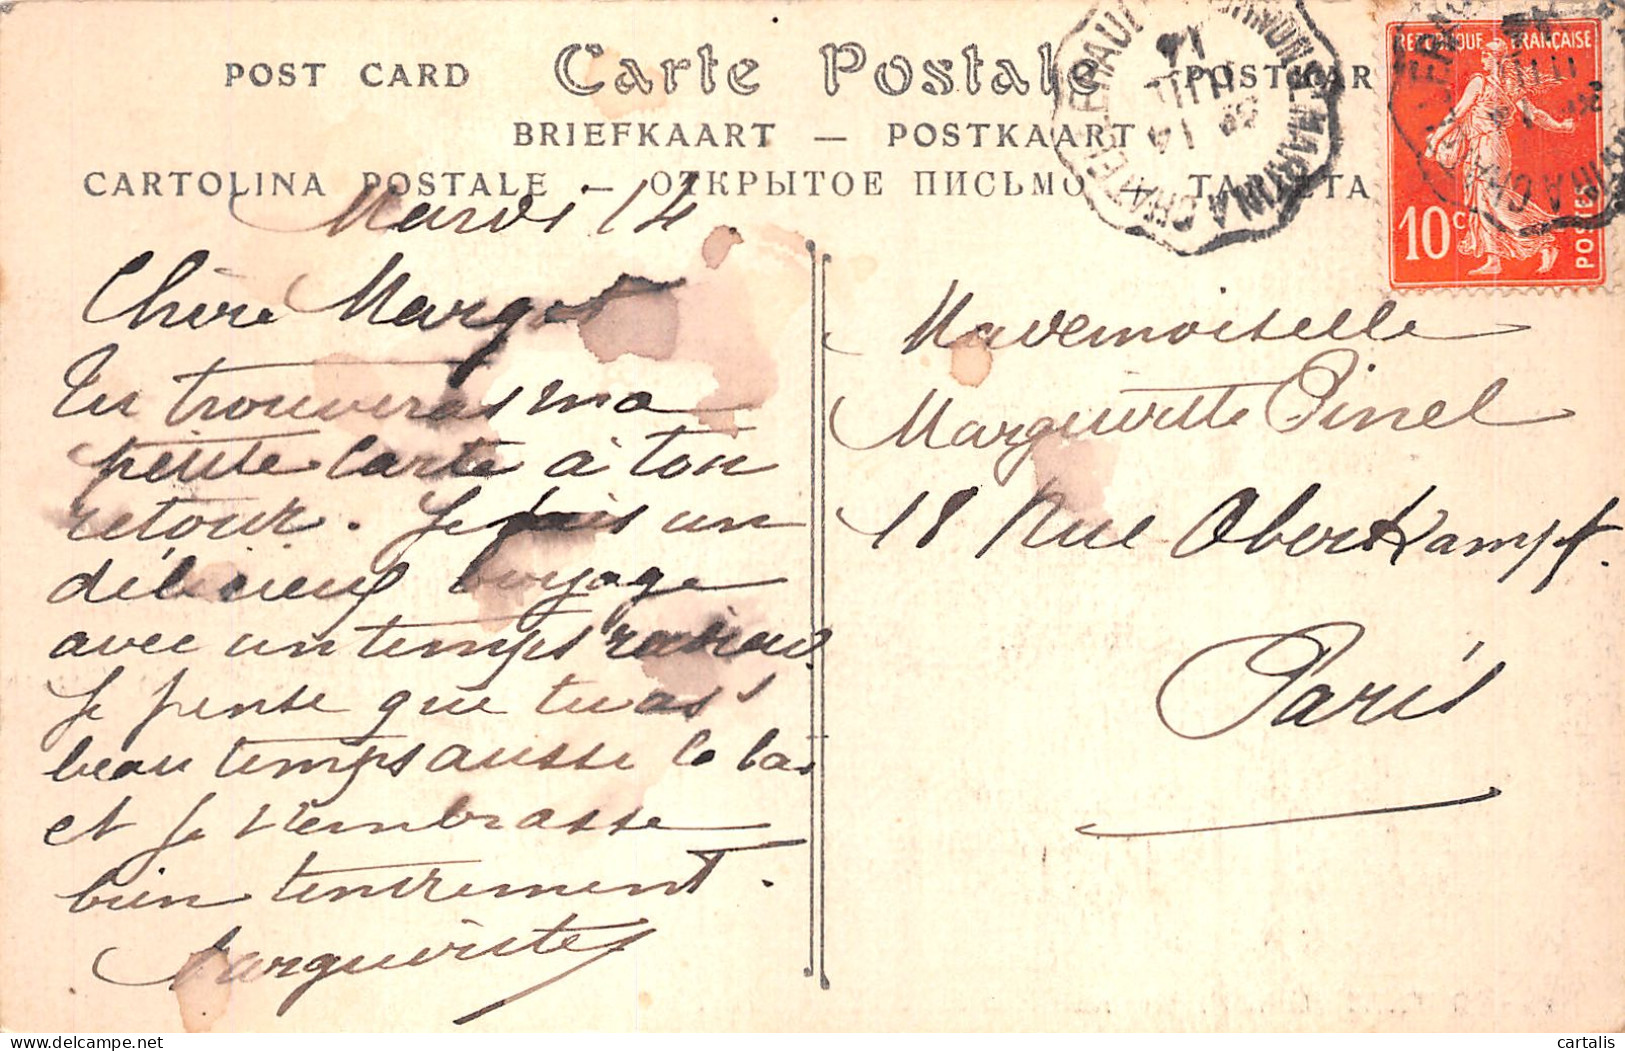 POST CARD Carte Postale POSTKAR
BRIEFKAART — POSTKAART
CARTOLINA POSTALE — ОТКРЫТОЕ ПИСЬМО
REPUBLIQUE FRANÇAISE
10c POSTES
14
14
Mardi 14.
Chère Margot
Tu trouveras ma
petite carte à ton
retour. Je fais un
délicieux voyage
avec un temps radieux.
Je pense que tu as
beau temps aussi la bas
et je t'embrasse
bien tendrement.
Marguerite
Mademoiselle
Marguerite Pinel
18 Rue Oberkampf.
Paris
cartalis